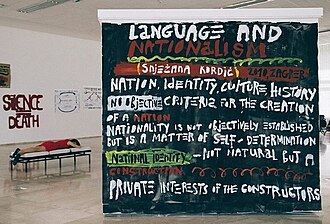 LANGUAGE AND
NATIONALISM
(SNJEŽANA KORDIĆ) 2010 ZAGREB
NATION, IDENTITY, CULTURE HISTORY
NO OBJECTIVE CRITERIA FOR THE CREATION
OF A NATION
NATIONALITY IS NOT OBJECTIVELY ESTABLISHED
BUT IS A MATTER OF SELF-DETERMINATION
NATIONAL IDENTITY — NOT NATURAL BUT A
CONSTRUCTION
PRIVATE INTERESTS OF THE CONSTRUCTORS
SILENCE
DEATH